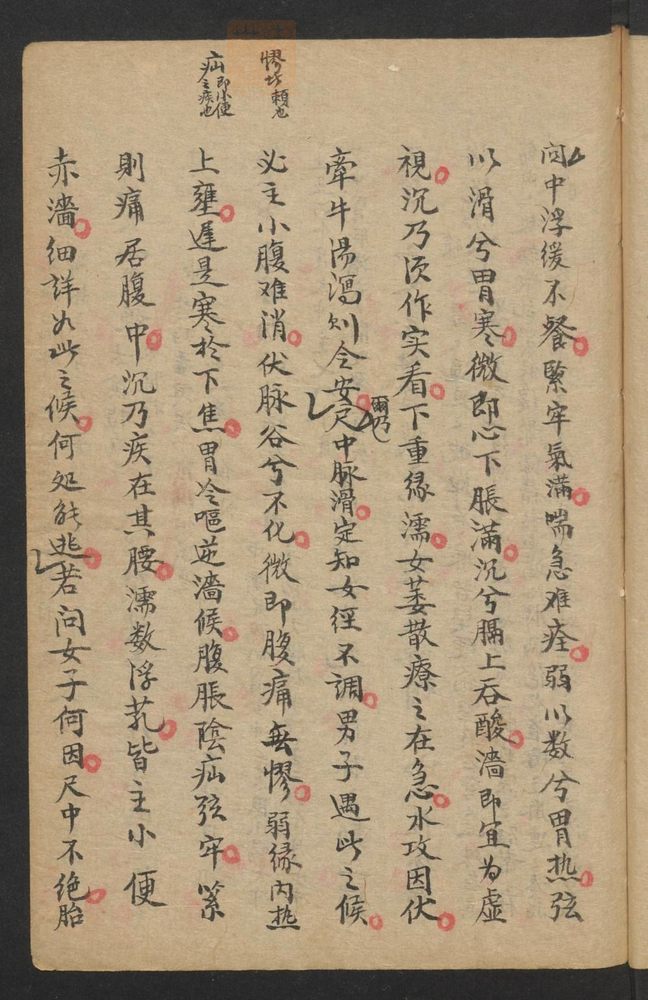 関中浮緩不餐緊牢氣滿喘急难痊弱以数兮胃热弦
以滑兮胃寒微即心下脹滿沉兮膈上吞酸濇即宜为虚
視沉乃须作实看下重缘濡女萎散療之在急水攻因伏
牽牛湯瀉则令安尺中脉滑定知女徑不調男子遇此之候
必主小腹难消伏脉谷兮不化微即腹痛無憀弱缘内热
上壅遲是寒於下焦胃冷嘔逆濇候腹脹陰疝弦牢紧
則痛居腹中沉乃疾在其腰濡数浮芤皆主小便
赤濇细詳如此之候何处能逃若问女子何因尺中不绝胎
爾乃
憀 頼也
疝即小便
之疾也